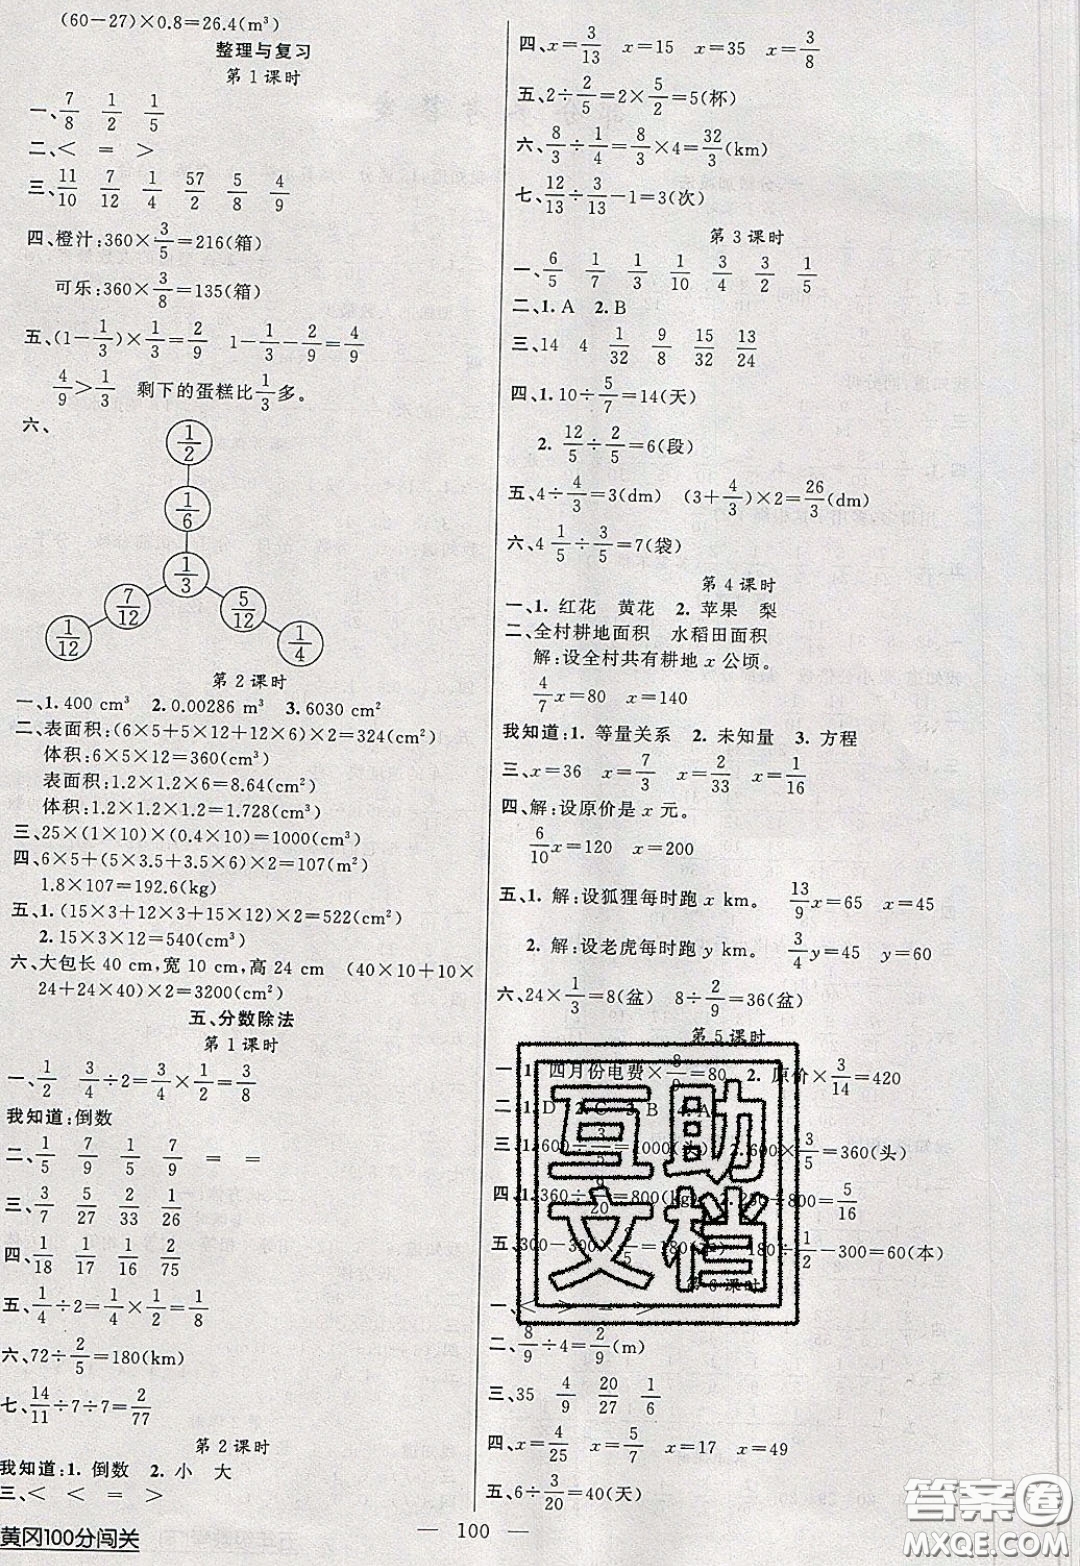 (60-27)×0.8=26.4(m³)
整理与复习
第1课时
一、7/8 1/2 1/5
二、< = >
三、11/10 7/12 1/4 57/2 5/8 4/9
四、橙汁:360×3/5=216(箱)
可乐:360×3/8=135(箱)
五、(1-1/3)×1/3=2/9 1-1/3-2/9=4/9
4/9>1/3 剩下的蛋糕比1/3多。
六、
1/2
1/6
1/3
7/12 5/12
1/12 1/4
第2课时
一、1. 400 cm³ 2. 0.00286 m³ 3. 6030 cm²
二、表面积:(6×5+5×12+12×6)×2=324(cm²)
体积:6×5×12=360(cm³)
表面积:1.2×1.2×6=8.64(cm²)
体积:1.2×1.2×1.2=1.728(cm³)
三、25×(1×10)×(0.4×10)=1000(cm³)
四、6×5+(5×3.5+3.5×6)×2=107(m²)
1.8×107=192.6(kg)
五、1. (15×3+12×3+15×12)×2=522(cm²)
2. 15×3×12=540(cm³)
六、大包长 40 cm,宽 10 cm,高 24 cm (40×10+10×
24+24×40)×2=3200(cm²)
五、分数除法
第1课时
一、1/2 3/4÷2=3/4×1/2=3/8
我知道:倒数
二、1/5 7/9 1/5 7/9 = =
三、3/7 5/27 2/33 1/26
四、1/18 1/17 1/11 2/75
五、1/4÷2=1/4×1/2=1/8
六、72÷2/5=180(km)
七、14/11÷7÷7=2/77
第2课时
我知道:1. 倒数 2. 小 大
三、< < = >
黄冈100分闯关
四、x=3/13 x=15 x=35 x=3/8
五、2÷2/5=2×5/2=5(杯)
六、8/3÷1/4=8/3×4=32/3(km)
七、12/13÷3/13-1=3(次)
第3课时
一、6/5 1/7 1/3 1/10 3/4 3/2 1/5
二、1. A 2. B
三、14 4 1/32 9/8 15/32 13/24
四、1. 10÷5/7=14(天)
2. 12/5÷2/5=6(段)
五、4÷4/3=3(dm) (3+4/3)×2=26/3(dm)
六、4 1/5÷3/5=7(袋)
第4课时
一、1. 红花 黄花 2. 苹果 梨
二、全村耕地面积 水稻田面积
解:设全村共有耕地 x 公顷。
4/7x=80 x=140
我知道:1. 等量关系 2. 未知量 3. 方程
三、x=36 x=7/3 x=2/33 x=1/16
四、解:设原价是 x 元。
6/10x=120 x=200
五、1. 解:设狐狸每时跑 x km。 13/9x=65 x=45
2. 解:设老虎每时跑 y km。 3/4y=45 y=60
六、24×1/3=8(盆) 8÷2/9=36(盆)
第5课时
一、1. 四月份电费×8/9=80 2. 原价×3/14=420
二、1. D 2. C 3. B 4. A
三、1. 600÷3/5=1000(头) 2. 600×3/5=360(头)
四、1. 360÷9/20=800(kg) 2. 250÷800=5/16
五、300-300× =180(本) 180÷1/2-300=60(本)
第6课时
一、< > = >
二、8/9÷4=2/9(m)
三、35 4/9 20/27 1/6
四、x=4/25 x=5/7 x=17 x=49
五、6÷3/20=40(天)
— 100 —
互助文档
答案圈
MXQE.COM